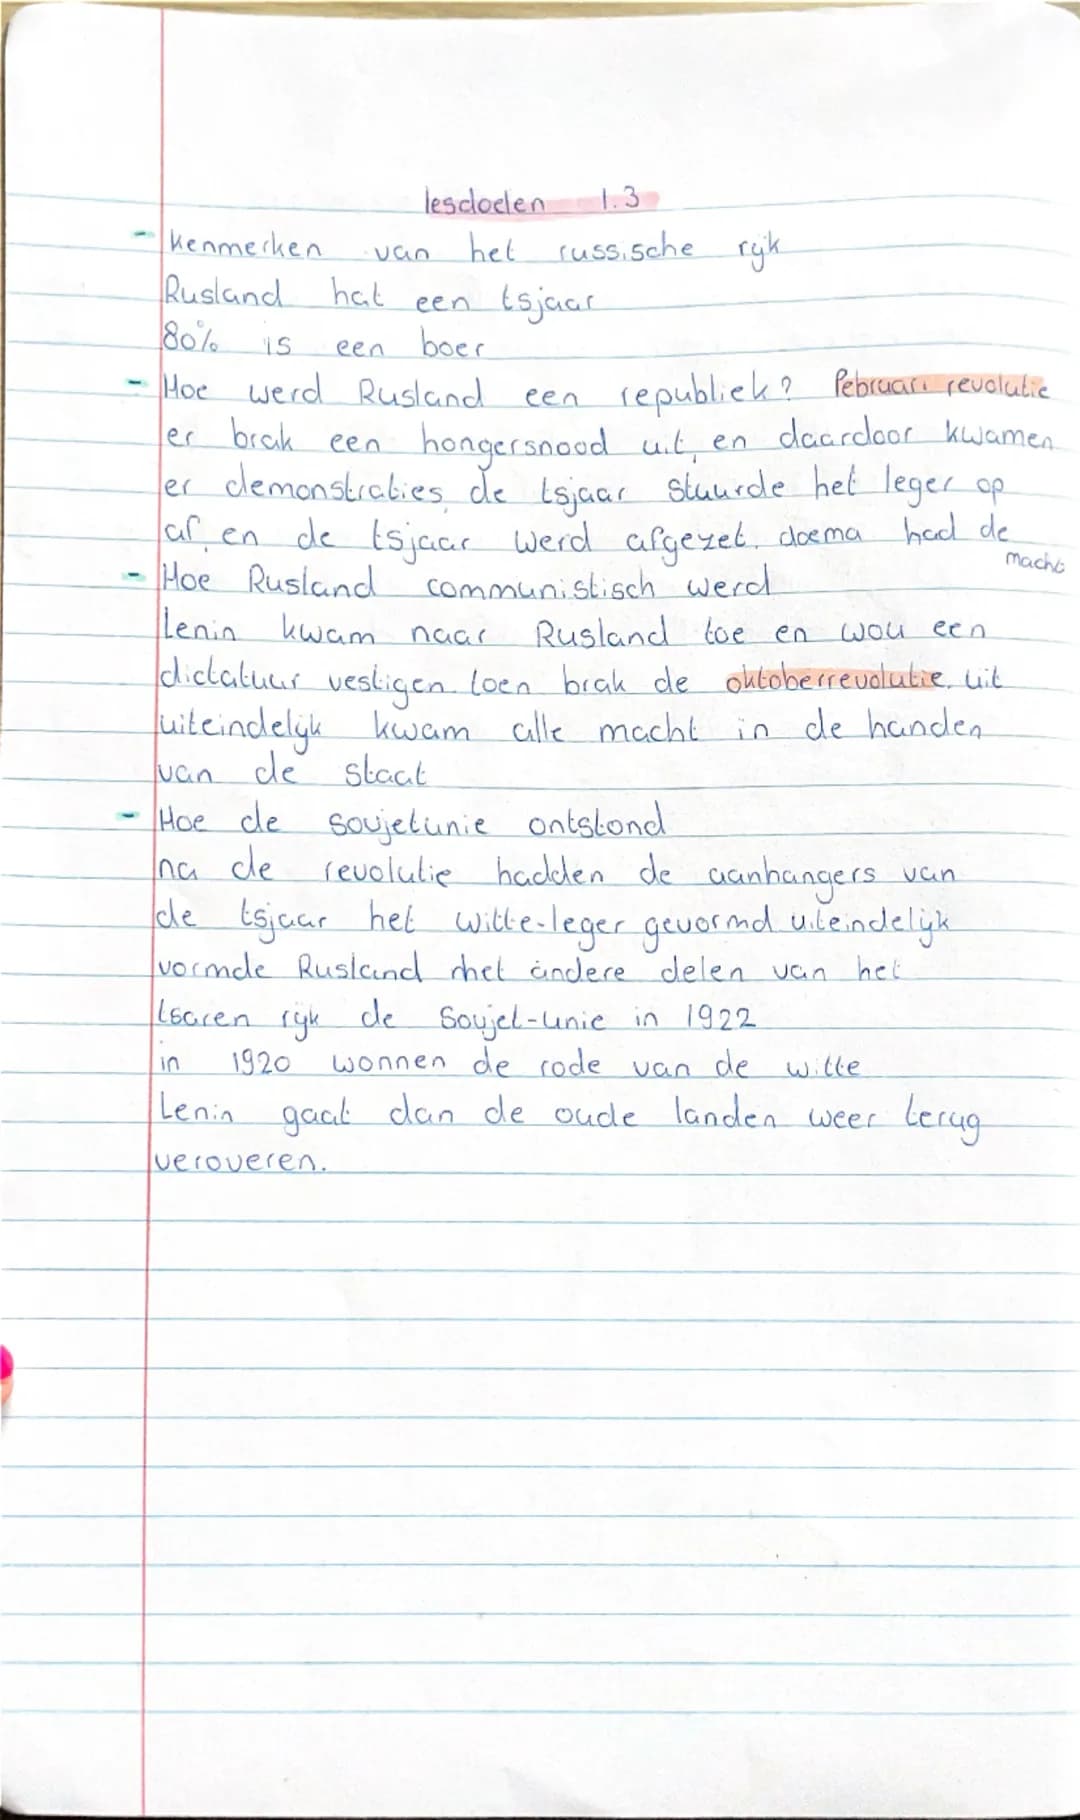 lesdoelen 1.3
- kenmerken van het russische rijk
Rusland hat een tsjaar
80% is een boer
- Hoe werd Rusland een republiek? Februari revolutie
er brak een hongersnood uit, en daardoor kwamen
er demonstraties, de tsjaar stuurde het leger op
af, en de tsjaar werd afgezet. doema had de
macht
- Hoe Rusland communistisch werd
Lenin kwam naar Rusland toe en wou een
dictatuur vestigen toen brak de oktoberrevolutie, uit
uiteindelijk kwam alle macht in de handen
van de staat
- Hoe de sovjetunie ontstond
na de revolutie hadden de aanhangers van
de tsjaar het witte-leger gevormd uiteindelijk
vormde Rusland met andere delen van het
tsaren rijk de Sovjet-unie in 1922
in 1920 wonnen de rode van de witte
Lenin gaat dan de oude landen weer terug
veroveren.